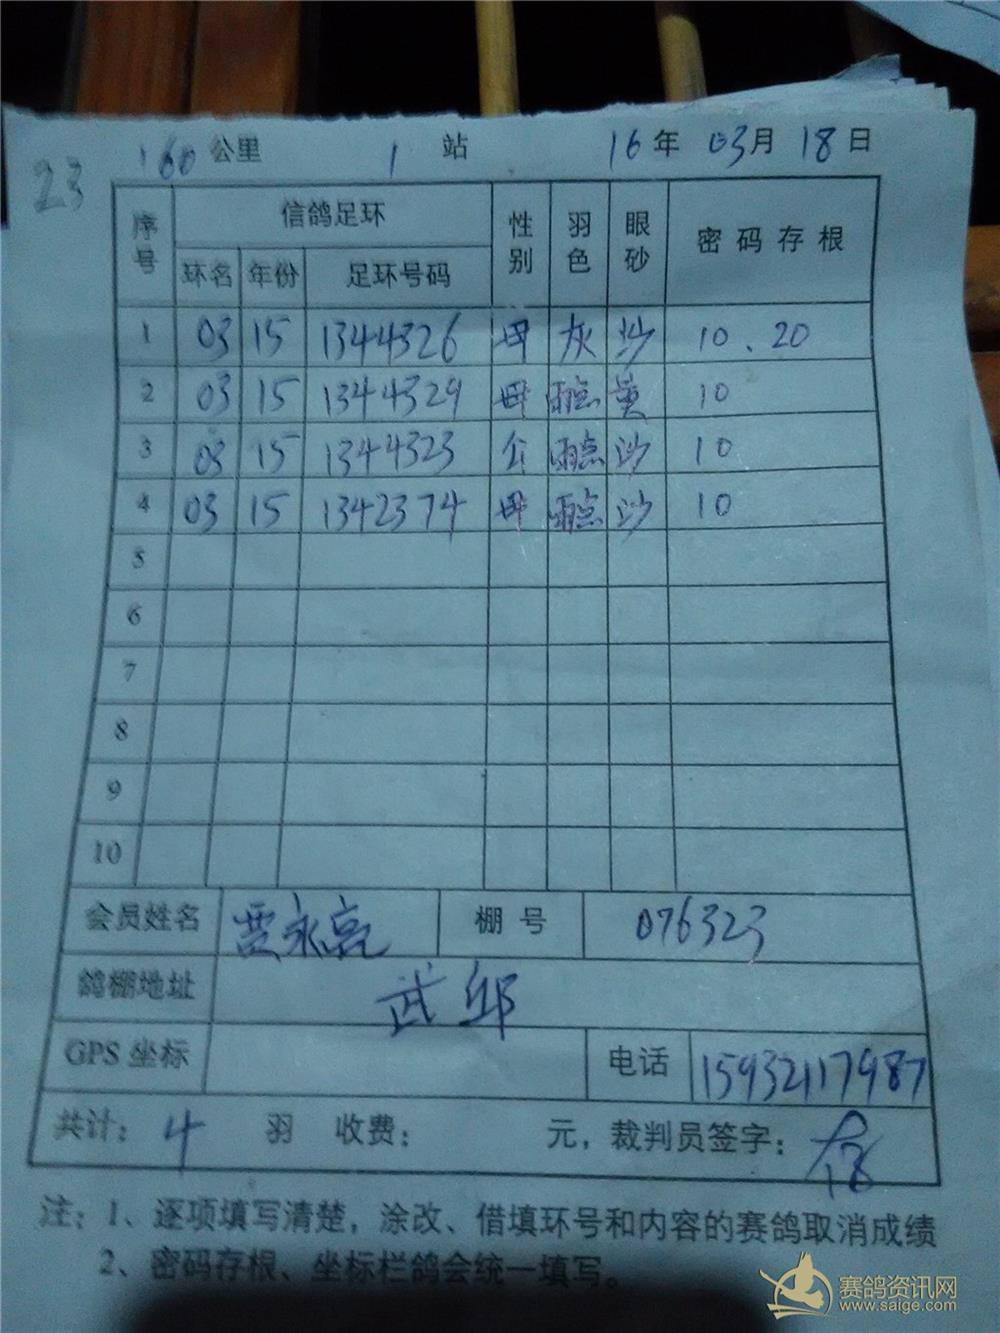 160 公里 1 站 16 年 03 月 18 日
23
序号 信鸽足环 性别 羽色 眼砂 密码存根
环名 年份 足环号码
1 03 15 1344326 母 灰 沙 10、20
2 03 15 1344329 母 雨点 黄 10
3 03 15 1344323 公 雨点 沙 10
4 03 15 1342374 母 雨点 沙 10
5
6
7
8
9
10
会员姓名 贾永亮 棚号 076323
鸽棚地址 武邱
GPS 坐标 电话 15932117987
共计: 4 羽 收费: 元, 裁判员签字:
注: 1、逐项填写清楚, 涂改、借填环号和内容的赛鸽取消成绩
2、密码存根、坐标栏鸽会统一填写。
赛鸽资讯网
www.saige.com